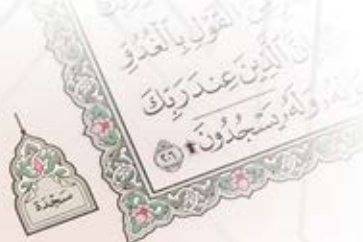 مِنَ الْقَوْلِ بِالْغُدُوِّ
نَّ الَّذِينَ عِندَ رَبِّكَ
نَهُ وَلَهُ يَسْجُدُونَ ۩ ٢٠٦
سَجْدَة